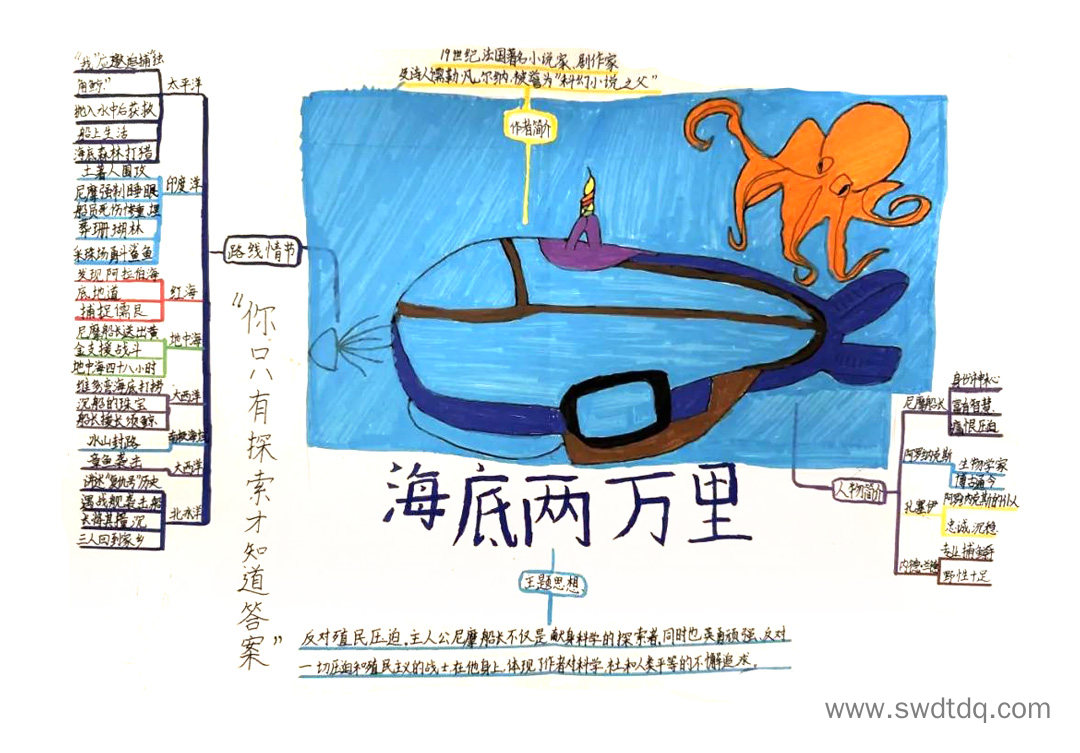 19世纪法国著名小说家、剧作家
及诗人儒勒·凡尔纳,被誉为"科幻小说之父"
作者简介
路线情节
太平洋
"我"应邀追捕"独
角鲸"
抛入水中后获救
船上生活
海底森林打猎
印度洋
土著人围攻
尼摩强制睡眠
船员死伤惨重,埋
葬珊瑚林
采珠场勇斗鲨鱼
红海
发现阿拉伯海
底地道
捕捉儒艮
地中海
尼摩船长送出黄
金支援战斗
地中海四十八小时
大西洋
维哥湾海底打捞
沉船的珠宝
船长接长须鲸
南极海域
冰山封路
大西洋
章鱼袭击
讲述"复仇号"历史
北冰洋
遇战舰袭击船
长将其撞沉
三人回到家乡
"你只有探索才知道答案"
海底两万里
人物简介
尼摩船长
身份神秘
富有智慧
痛恨压迫
阿罗纳克斯
生物学家
博古通今
孔塞伊
阿罗纳克斯的仆人
忠诚沉稳
内德·兰德
专业捕鲸手
野性十足
主题思想
反对殖民压迫,主人公尼摩船长不仅是献身科学的探索者,同时也英勇顽强、反对
一切压迫和殖民主义的战士,在他身上,体现了作者对科学、社和人类平等的不懈追求。
www.swdtdq.com